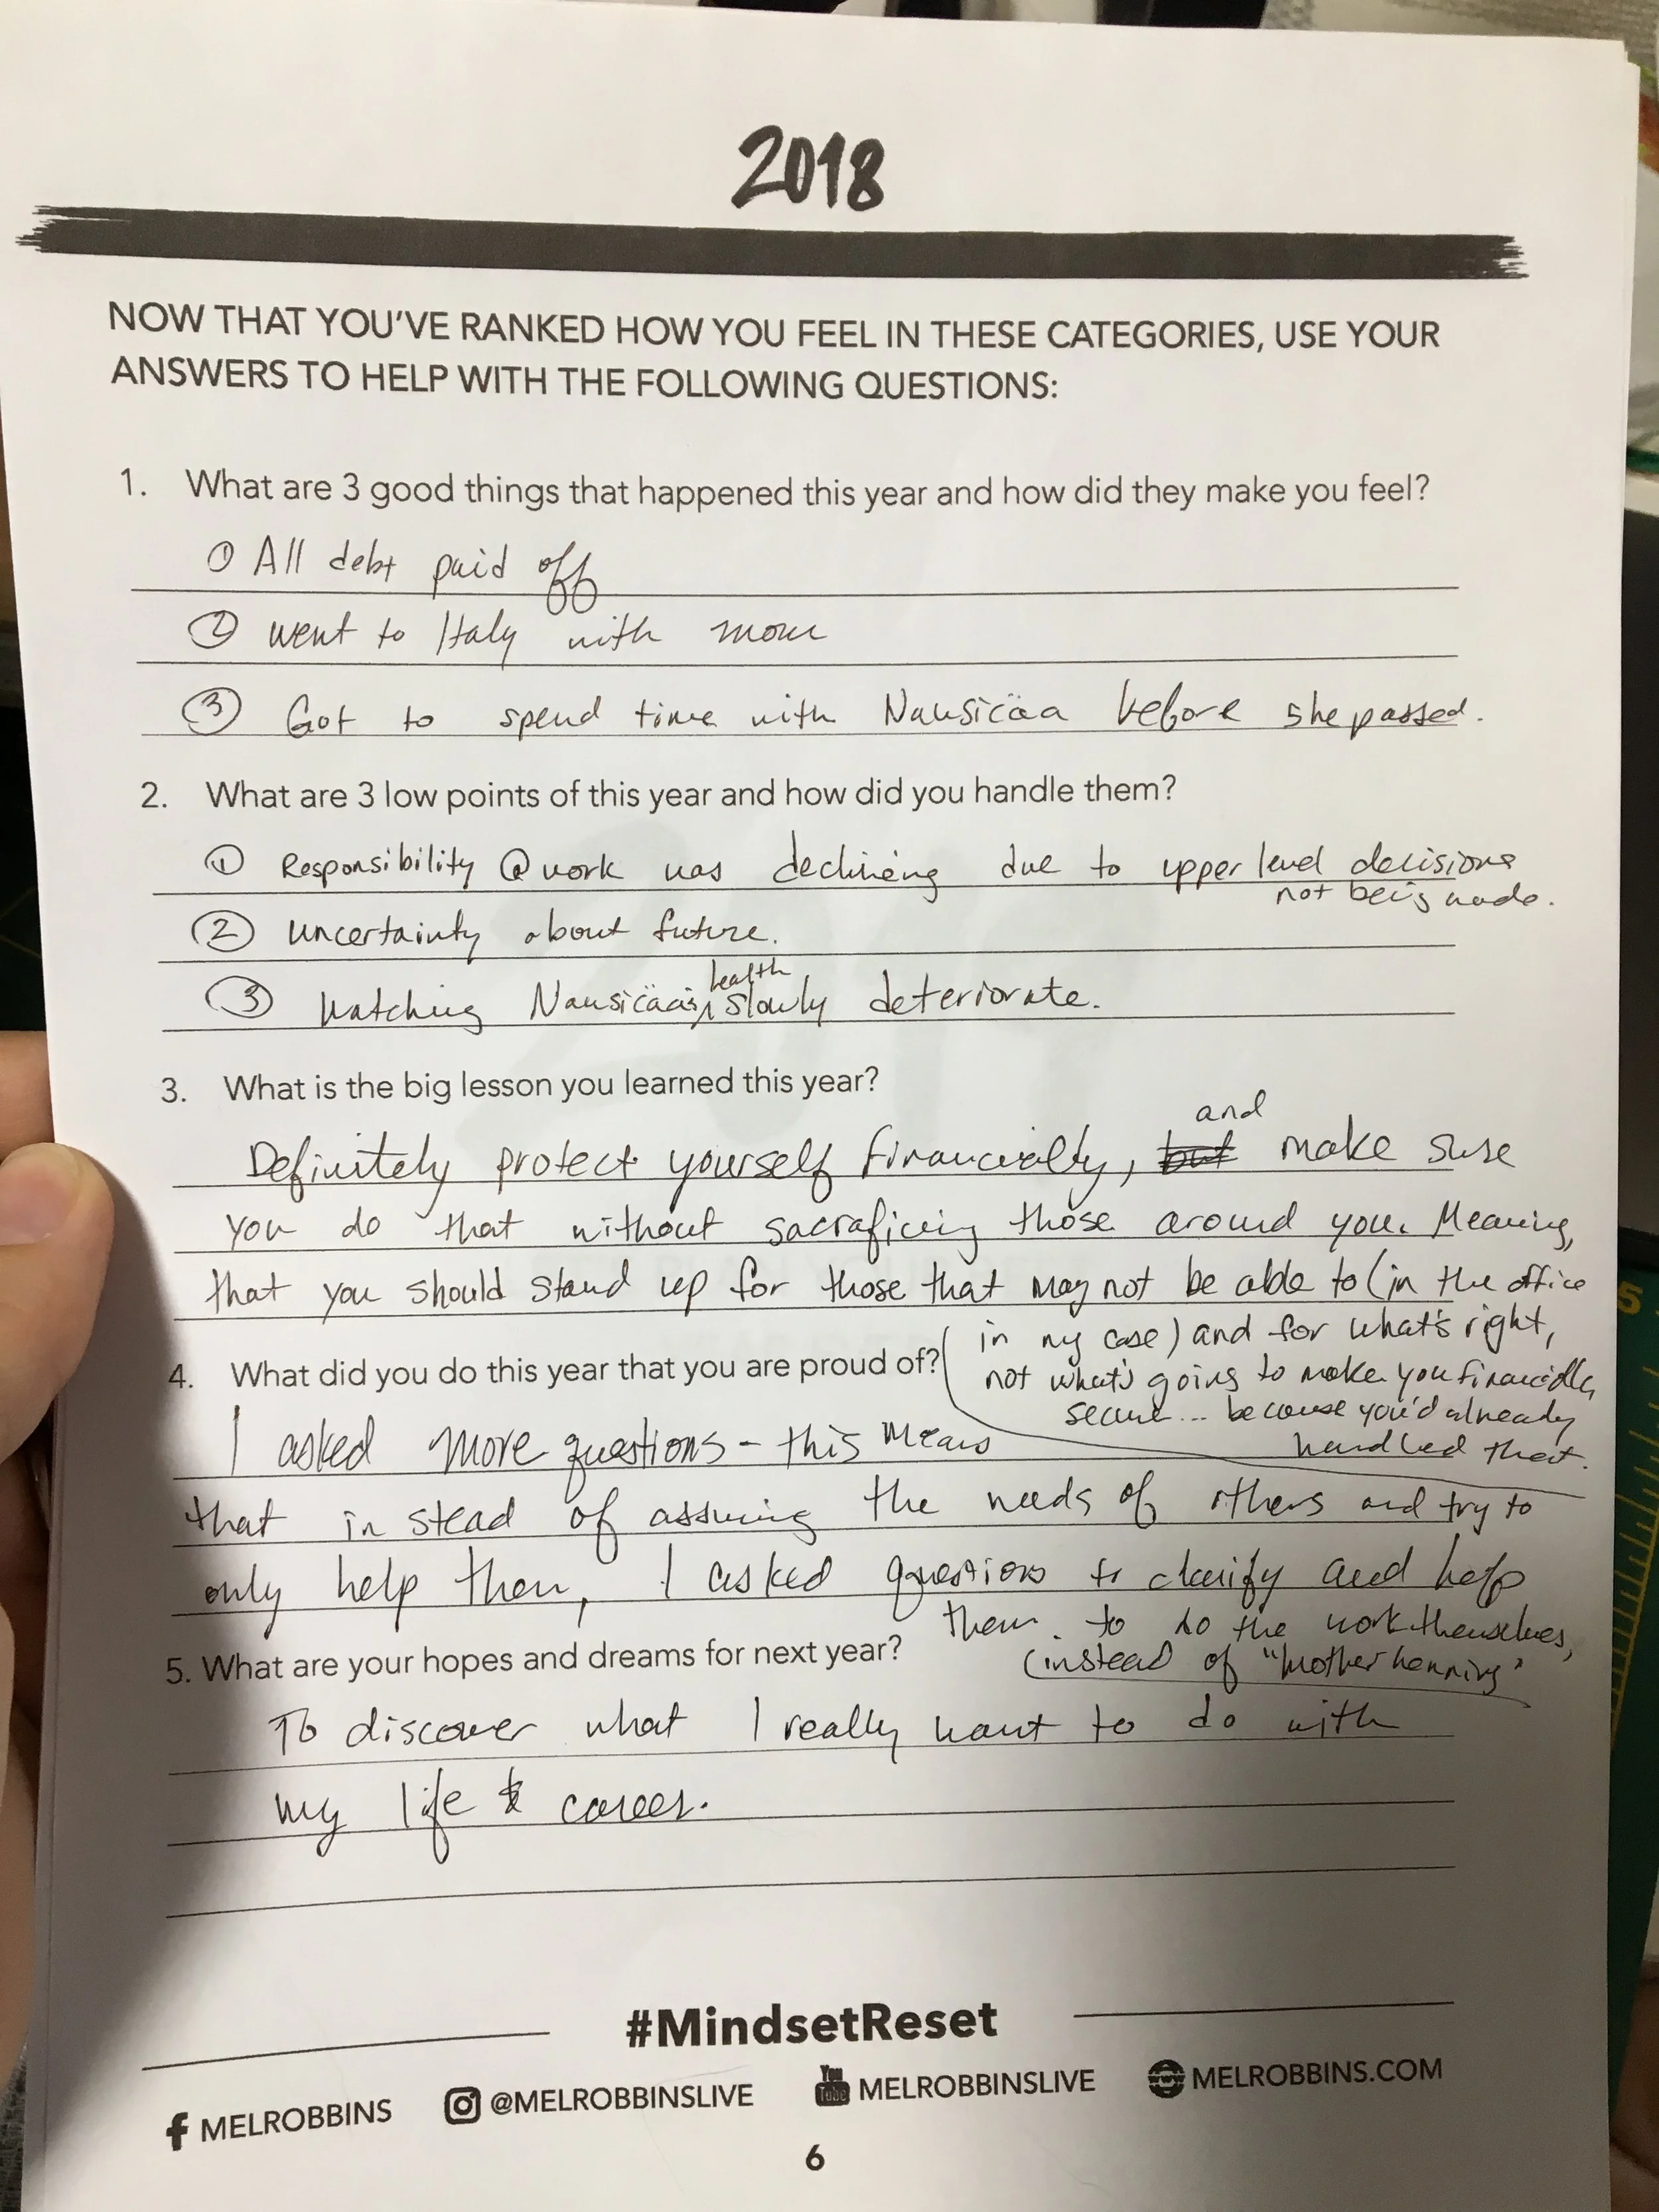 2018
NOW THAT YOU'VE RANKED HOW YOU FEEL IN THESE CATEGORIES, USE YOUR
ANSWERS TO HELP WITH THE FOLLOWING QUESTIONS:
1. What are 3 good things that happened this year and how did they make you feel?
① All debt paid off
② went to Italy with mom
③ Got to spend time with Nausicäa before she passed.
2. What are 3 low points of this year and how did you handle them?
① Responsibility @ work was declining due to upper level decisions
not being made.
② uncertainty about future.
health
③ Watching Nausicäa's slowly deteriorate.
3. What is the big lesson you learned this year?
and
Definitely protect yourself financially, but make sure
you do that without sacraficing those around you. Meaning,
that you should stand up for those that may not be able to (in the office
in my case) and for what's right,
not what's going to make you financially
secure... because you'd already
handled that.
4. What did you do this year that you are proud of?
I asked more questions - this means
that in stead of assuming the needs of others and try to
only help them, I asked questions to clarify and help
them to do the work themselves,
(instead of "mother henning"
5. What are your hopes and dreams for next year?
To discover what I really want to do with
my life & career.
#MindsetReset
MELROBBINS @MELROBBINSLIVE You Tube MELROBBINSLIVE www MELROBBINS.COM
6
5